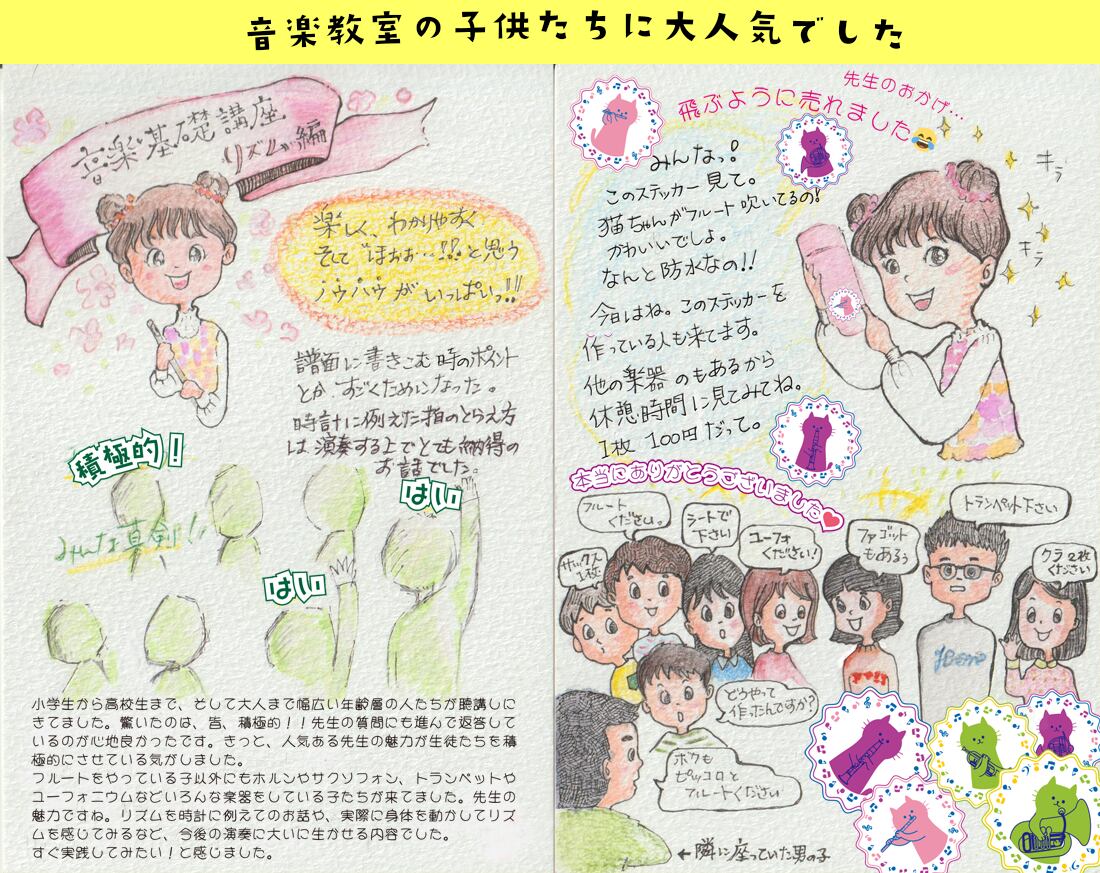 音楽教室の子供たちに大人気でした
音楽基礎講座
リズム編
楽しく、わかりやすく
そして"ほぉぉ…!!"と思う
ノウハウがいっぱいっ!!
譜面に書きこむ時のポイント
とか、すごくためになった。
時計に例えた拍のとらえ方
は演奏する上でとても納得の
お話でした。
積極的!
みんな真剣!!
はい
はい
小学生から高校生まで、そして大人まで幅広い年齢層の人たちが聴講しに
きてました。驚いたのは、皆、積極的!!先生の質問にも進んで返答して
いるのが心地良かったです。きっと、人気ある先生の魅力が生徒たちを積
極的にさせている気がしました。
フルートをやっている子以外にもホルンやサクソフォン、トランペットや
ユーフォニウムなどいろんな楽器をしている子たちが来てました。先生の
魅力ですね。リズムを時計に例えてのお話や、実際に身体を動かしてリズ
ムを感じてみるなど、今後の演奏に大いに生かせる内容でした。
すぐ実践してみたい!と感じました。
先生のおかげ…
飛ぶように売れました😂
みんなっ!
このステッカー見て。
猫ちゃんがフルート吹いてるの!
かわいいでしょ。
なんと防水なの!!
今日はね。このステッカーを
作っている人も来てます。
他の楽器のもあるから
休憩時間に見てみてね。
1枚 100円だって。
キラ
キラ
本当にありがとうございました❤
フルート
ください。
サックス
1枚
ラートで
下さい
ユーフォ
ください!
ファゴット
もあるぅ
トランペット下さい
クラ2枚
ください
どうやって
作ったんですか?
ボクも
ピッコロと
フルートください
←隣に座っていた男の子